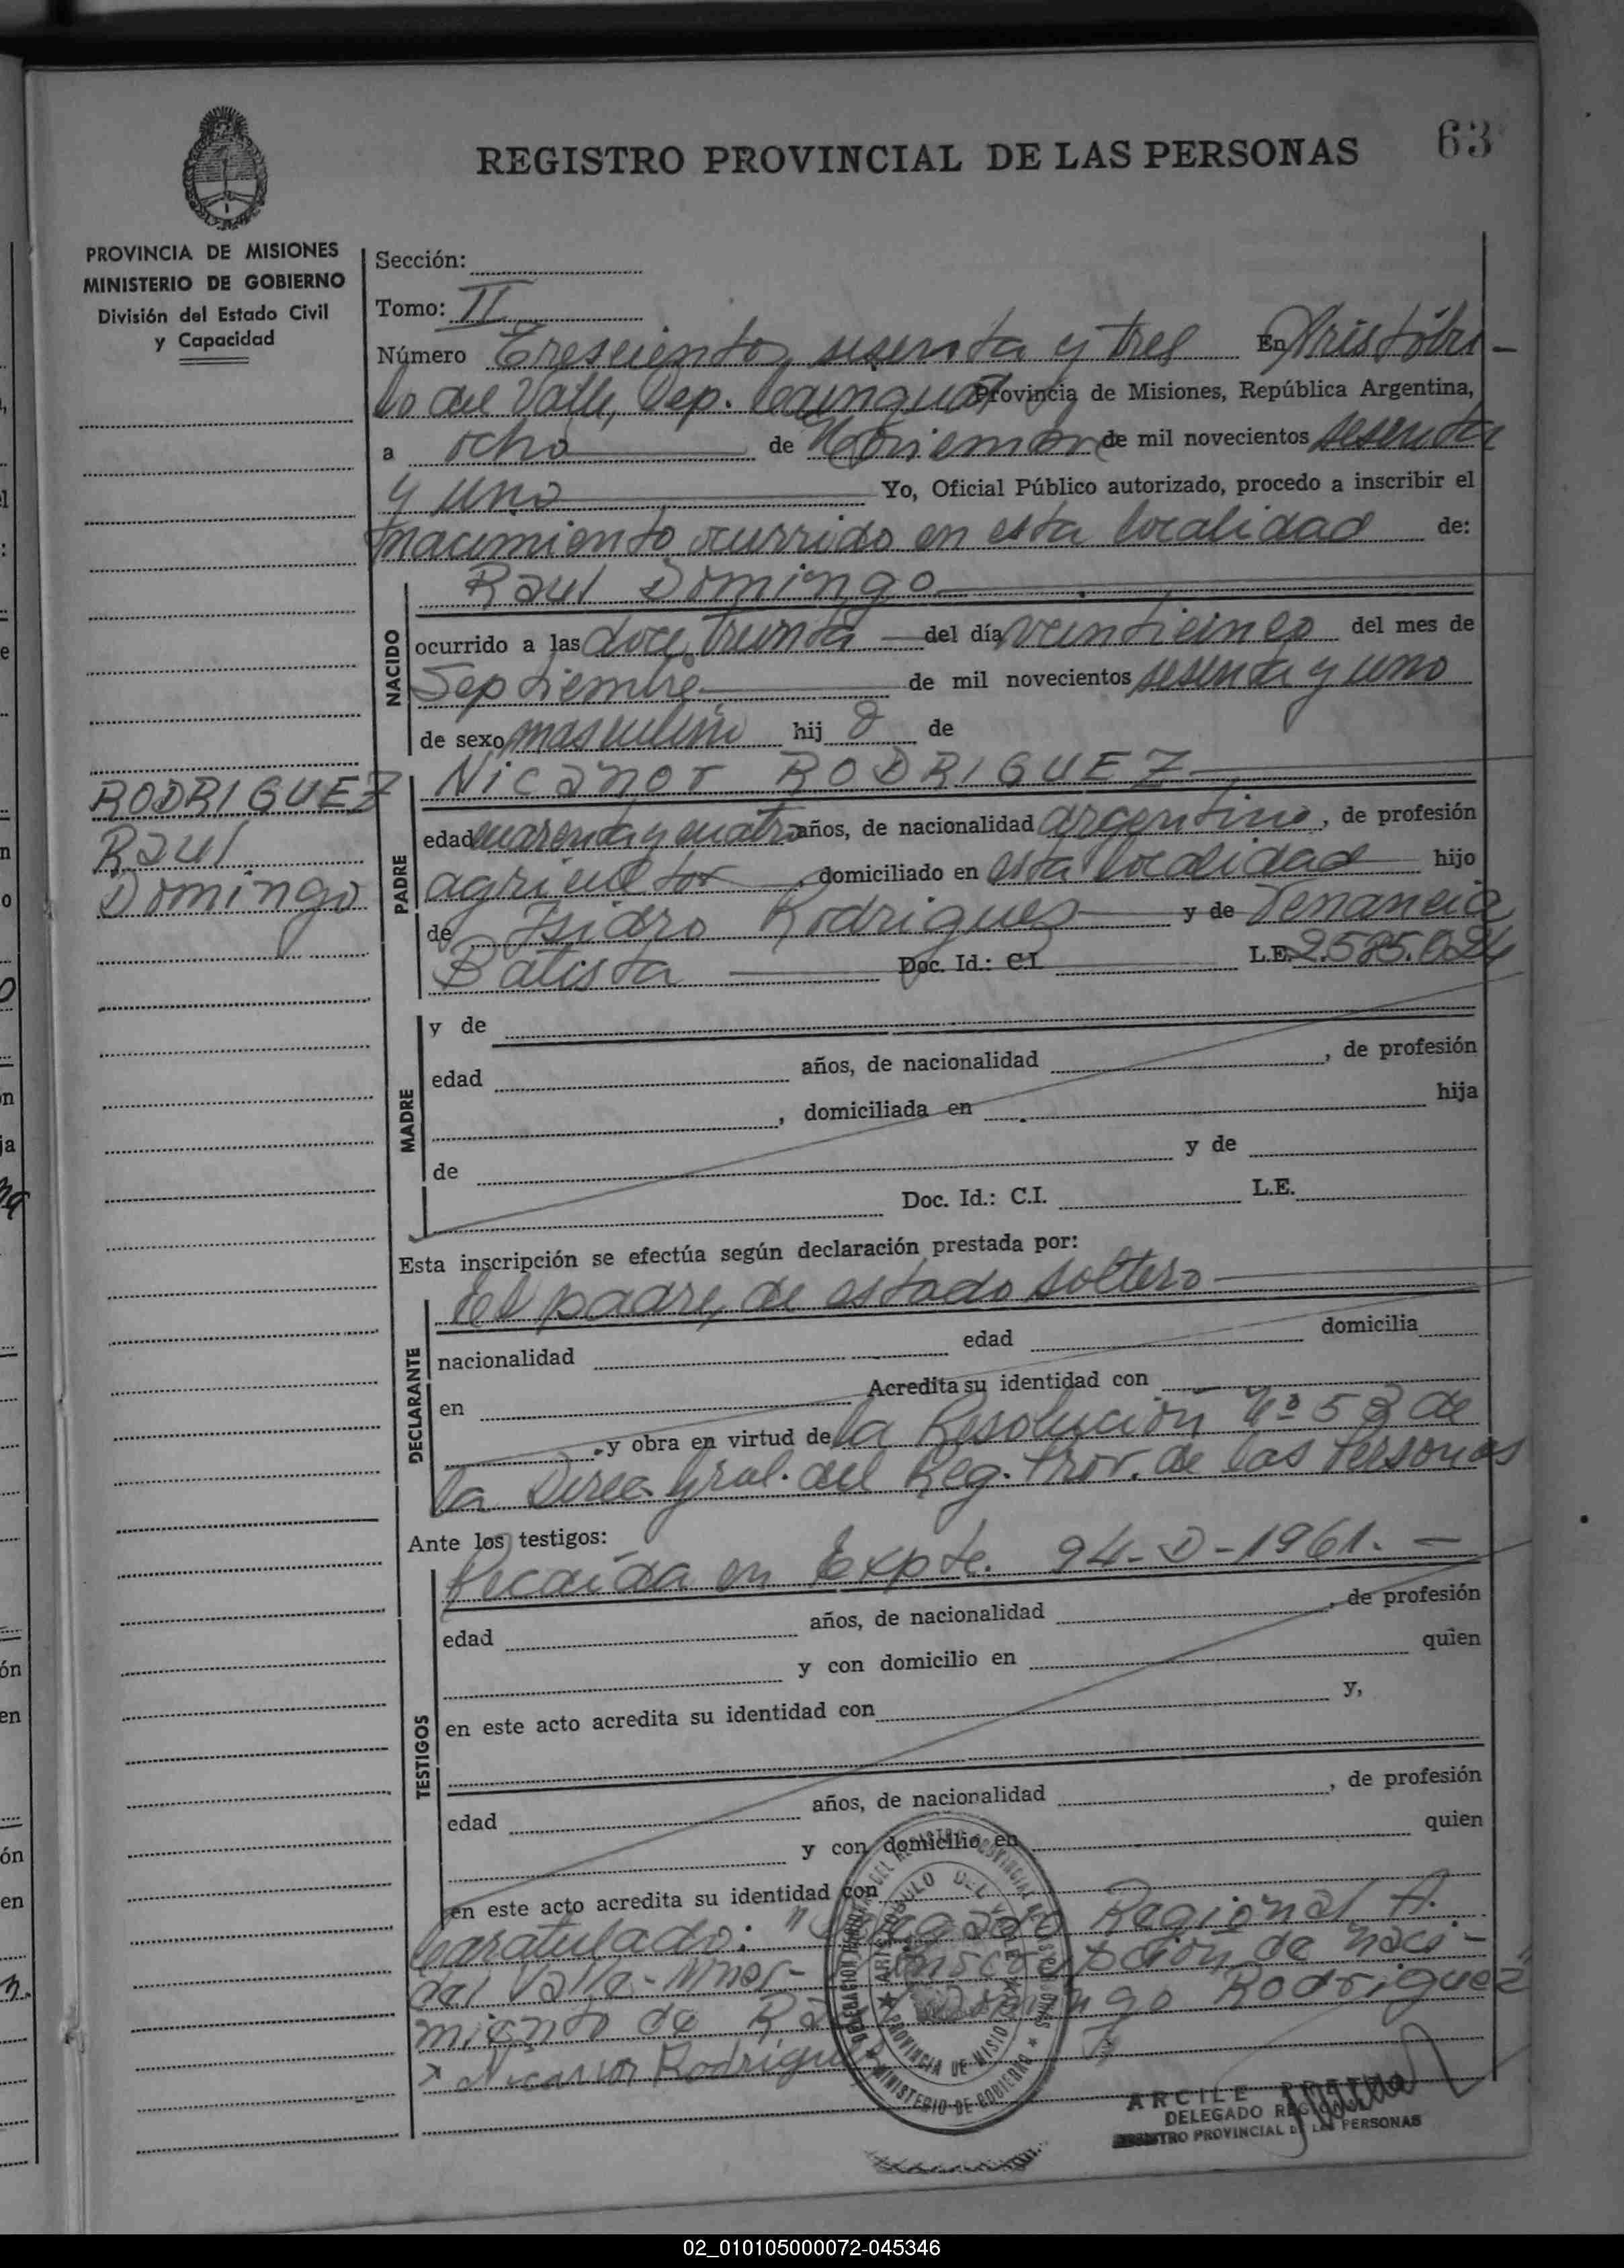 63
REGISTRO PROVINCIAL DE LAS PERSONAS
PROVINCIA DE MISIONES
MINISTERIO DE GOBIERNO
División del Estado Civil
y Capacidad
Sección:
Tomo: II
Número Tresciento sesenta y tres En Aristóbu-
lo del Valle, Dep. Cainguás Provincia de Misiones, República Argentina,
a ocho de Noviembre de mil novecientos sesenta
y uno Yo, Oficial Público autorizado, procedo a inscribir el
nacimiento ocurrido en esta localidad de:
NACIDO
Raul Domingo
ocurrido a las doce treinta del día veinticinco del mes de
Septiembre de mil novecientos sesenta y uno
de sexo masculino hij o de
RODRIGUEZ
Raul
Domingo
PADRE
Nicanor RODRIGUEZ
edad cuarenta y cuatro años, de nacionalidad argentino, de profesión
agricultor, domiciliado en esta localidad hijo
de Isidro Rodriguez y de Venancia
Batista Doc. Id.: C.I. L.E. 2.585.024
MADRE
y de
edad años, de nacionalidad , de profesión
, domiciliada en hija
de y de
Doc. Id.: C.I. L.E.
Esta inscripción se efectúa según declaración prestada por:
DECLARANTE
El padre, de estado soltero
nacionalidad edad domicilia
en Acredita su identidad con
y obra en virtud de la Resolución Nº 53 de
la Direc. Gral. del Reg. Prov. de las Personas
Ante los testigos:
TESTIGOS
Recaída en Expte. 94-D-1961. -
edad años, de nacionalidad , de profesión
y con domicilio en quien
en este acto acredita su identidad con y,
edad años, de nacionalidad , de profesión
y con domicilio en quien
en este acto acredita su identidad con
Caratulado: "Delegado Regional A.
del Valle- Mnes- Inscripción de naci-
miento de Raul Domingo Rodriguez"
x Nicanor Rodriguez
ARISTOBULO DEL VALLE
PROVINCIA DE MISIONES
MINISTERIO DE GOBIERNO
DELEGADO REGIONAL
REGISTRO PROVINCIAL DE LAS PERSONAS
02_010105000072-045346